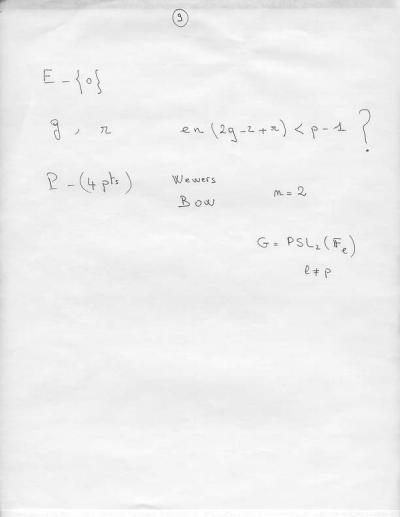 9
E - {0}
g, r en (2g-2+r) < p-1 ?
P - (4 pts) Wewers
Bow n = 2
G = PSL₂(𝔽ₑ)
ℓ ≠ p